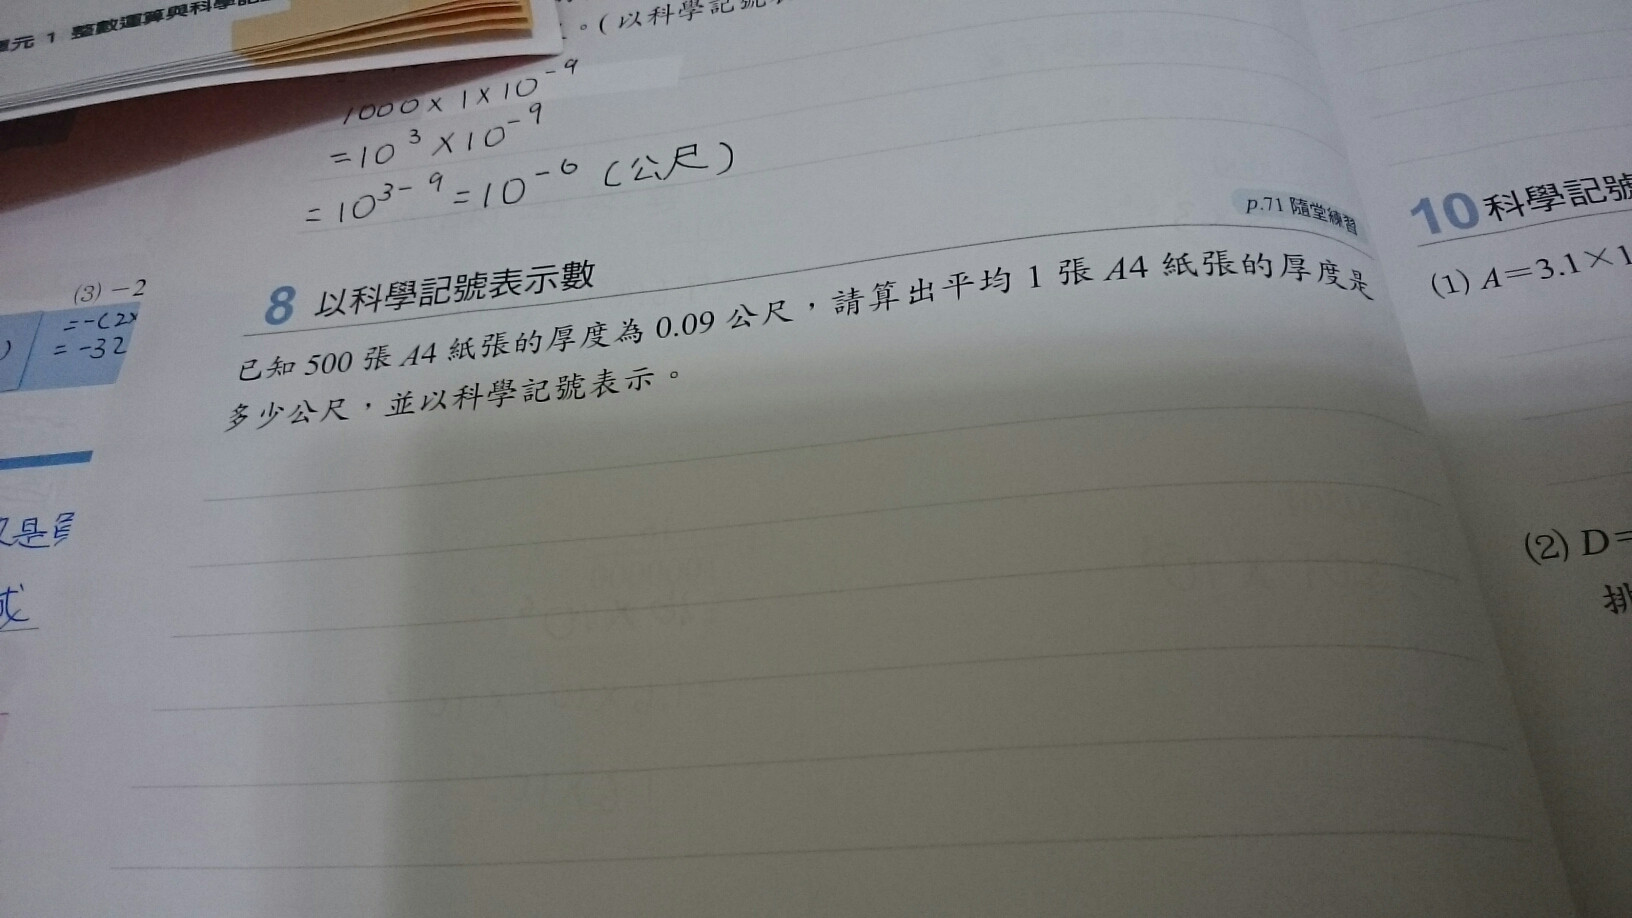 元 1 整數運算與科學記
。(以科學記號
1000×1×10⁻⁹
=10³×10⁻⁹
=10³⁻⁹=10⁻⁶(公尺)
p.71 隨堂練習
8 以科學記號表示數
已知 500 張 A4 紙張的厚度為 0.09 公尺，請算出平均 1 張 A4 紙張的厚度是
多少公尺，並以科學記號表示。
(3) −2
=-(2×
)
= -32
是
或
10 科學記號
(1) A＝3.1×1
(2) D＝
排